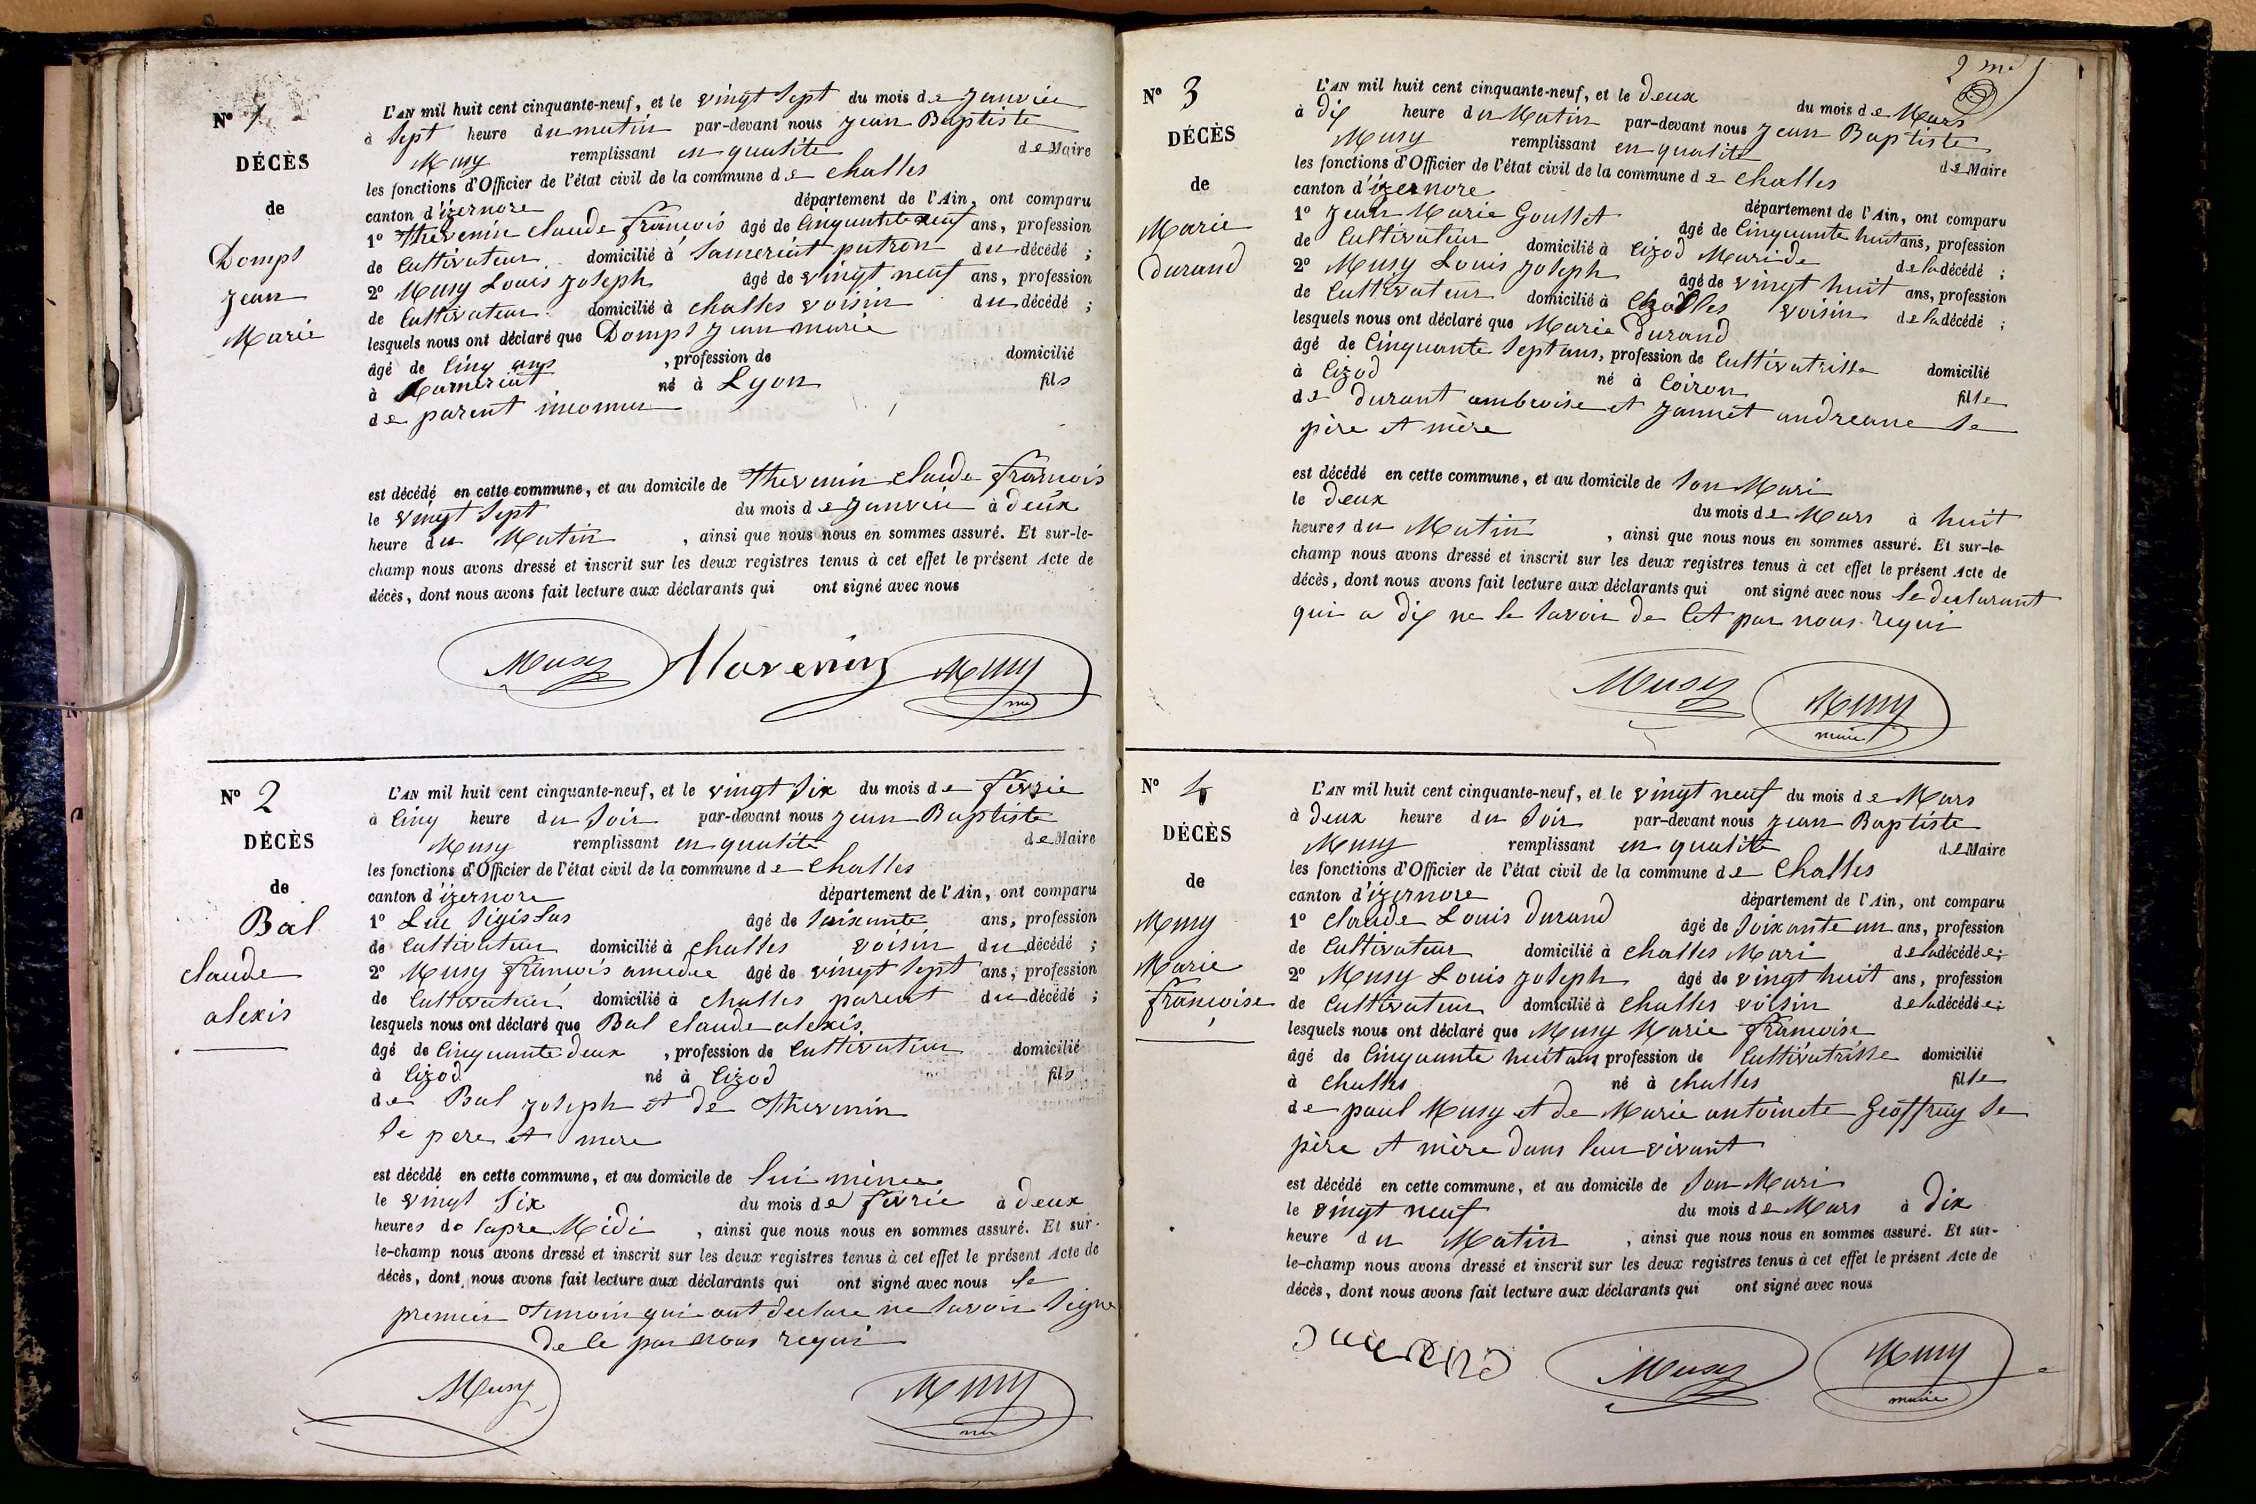 N° 1
DÉCÈS
de
Domps
Jean
Marie
L'AN mil huit cent cinquante-neuf, et le vingt sept du mois de Janvier
à sept heure du matin par-devant nous Jean Baptiste
Musy remplissant en qualité de Maire
les fonctions d'Officier de l'état civil de la commune de Challes
canton d'izernore département de l'Ain, ont comparu
1° thévenin claude françois âgé de Cinquante neuf ans, profession
de Cultivateur domicilié à Samerint patron du décédé ;
2° Musy Louis Joseph âgé de vingt neuf ans, profession
de Cultivateur domicilié à challes voisin du décédé ;
lesquels nous ont déclaré que Domps Jean marie
âgé de Cinq ans , profession de domicilié
à né à Lyon fils
de parent inconnu
est décédé en cette commune, et au domicile de thevenin claude françois
le vingt sept du mois de Janvier à deux
heure du Matin , ainsi que nous nous en sommes assuré. Et sur-le-
champ nous avons dressé et inscrit sur les deux registres tenus à cet effet le présent Acte de
décès, dont nous avons fait lecture aux déclarants qui ont signé avec nous
Musy Thevenin Musy
me
N° 2
DÉCÈS
de
Bal
claude
alexis
L'AN mil huit cent cinquante-neuf, et le vingt six du mois de fevrie
à Cinq heure du Soir par-devant nous Jean Baptiste
Musy remplissant en qualité de Maire
les fonctions d'Officier de l'état civil de la commune de Challes
canton d'izernore département de l'Ain, ont comparu
1° Luc âgé de Soixante ans, profession
de Cultivateur domicilié à challes voisin du décédé ;
2° Musy françois amedée âgé de vingt sept ans, profession
de Cultivateur domicilié à challes parent du décédé ;
lesquels nous ont déclaré que Bal claude alexis
âgé de Cinquante deux , profession de Cultivateur domicilié
à Cizod né à Cizod fils
de Bal Joseph et de Thevenin
Se pere et mere
est décédé en cette commune, et au domicile de lui même
le vingt six du mois de fevrie à deux
heures de lapre Midi , ainsi que nous nous en sommes assuré. Et sur-
le-champ nous avons dressé et inscrit sur les deux registres tenus à cet effet le présent Acte de
décès, dont nous avons fait lecture aux déclarants qui ont signé avec nous le
premier temoin qui ont declare ne Savoir Signe
de le par nous requi
Musy Musy
me
2 me
N° 3
DÉCÈS
de
Marie
Durand
L'AN mil huit cent cinquante-neuf, et le deux du mois de Mars
à dix heure du Matin par-devant nous Jean Baptiste
Musy remplissant en qualité de Maire
les fonctions d'Officier de l'état civil de la commune de Challes
canton d'izernore département de l'Ain, ont comparu
1° Jean Marie Goullet âgé de Cinquante huit ans, profession
de Cultivateur domicilié à Cizod Mari de de la décédé ;
2° Musy Louis Joseph âgé de vingt huit ans, profession
de Cultivateur domicilié à Challes voisin de la décédé ;
lesquels nous ont déclaré que Marie Durand
âgé de Cinquante Sept ans, profession de Cultivatrisse domicilié
à Cizod né à Coiron fille
de durant ambroise et Jannet andreanne Se
père et mère
est décédé en cette commune, et au domicile de Son Mari
le deux du mois de Mars à huit
heures du Matin , ainsi que nous nous en sommes assuré. Et sur-le-
champ nous avons dressé et inscrit sur les deux registres tenus à cet effet le présent Acte de
décès, dont nous avons fait lecture aux déclarants qui ont signé avec nous le declarant
qui a dis ne le Savoir de Cet par nous requi
Musy Musy
maire
N° 4
DÉCÈS
de
Musy
Marie
françoise
L'AN mil huit cent cinquante-neuf, et le vingt neuf du mois de Mars
à deux heure du Soir par-devant nous Jean Baptiste
Musy remplissant en qualité de Maire
les fonctions d'Officier de l'état civil de la commune de Challes
canton d'izernore département de l'Ain, ont comparu
1° Claude Louis Durand âgé de Soixante un ans, profession
de Cultivateur domicilié à challes Mari de la décédée ;
2° Musy Louis Joseph âgé de vingt huit ans, profession
de Cultivateur domicilié à Challes voisin de la décédée ;
lesquels nous ont déclaré que Musy Marie françoise
âgé de Cinquante huit ans profession de Cultivatrisse domicilié
à Challes né à challes fille
de paul Musy et de Marie antoinete Geoffray Se
père et mère dans leur vivant
est décédé en cette commune, et au domicile de Son Mari
le vingt neuf du mois de Mars à dix
heure du Matin , ainsi que nous nous en sommes assuré. Et sur-
le-champ nous avons dressé et inscrit sur les deux registres tenus à cet effet le présent Acte de
décès, dont nous avons fait lecture aux déclarants qui ont signé avec nous
Musy Musy
maire